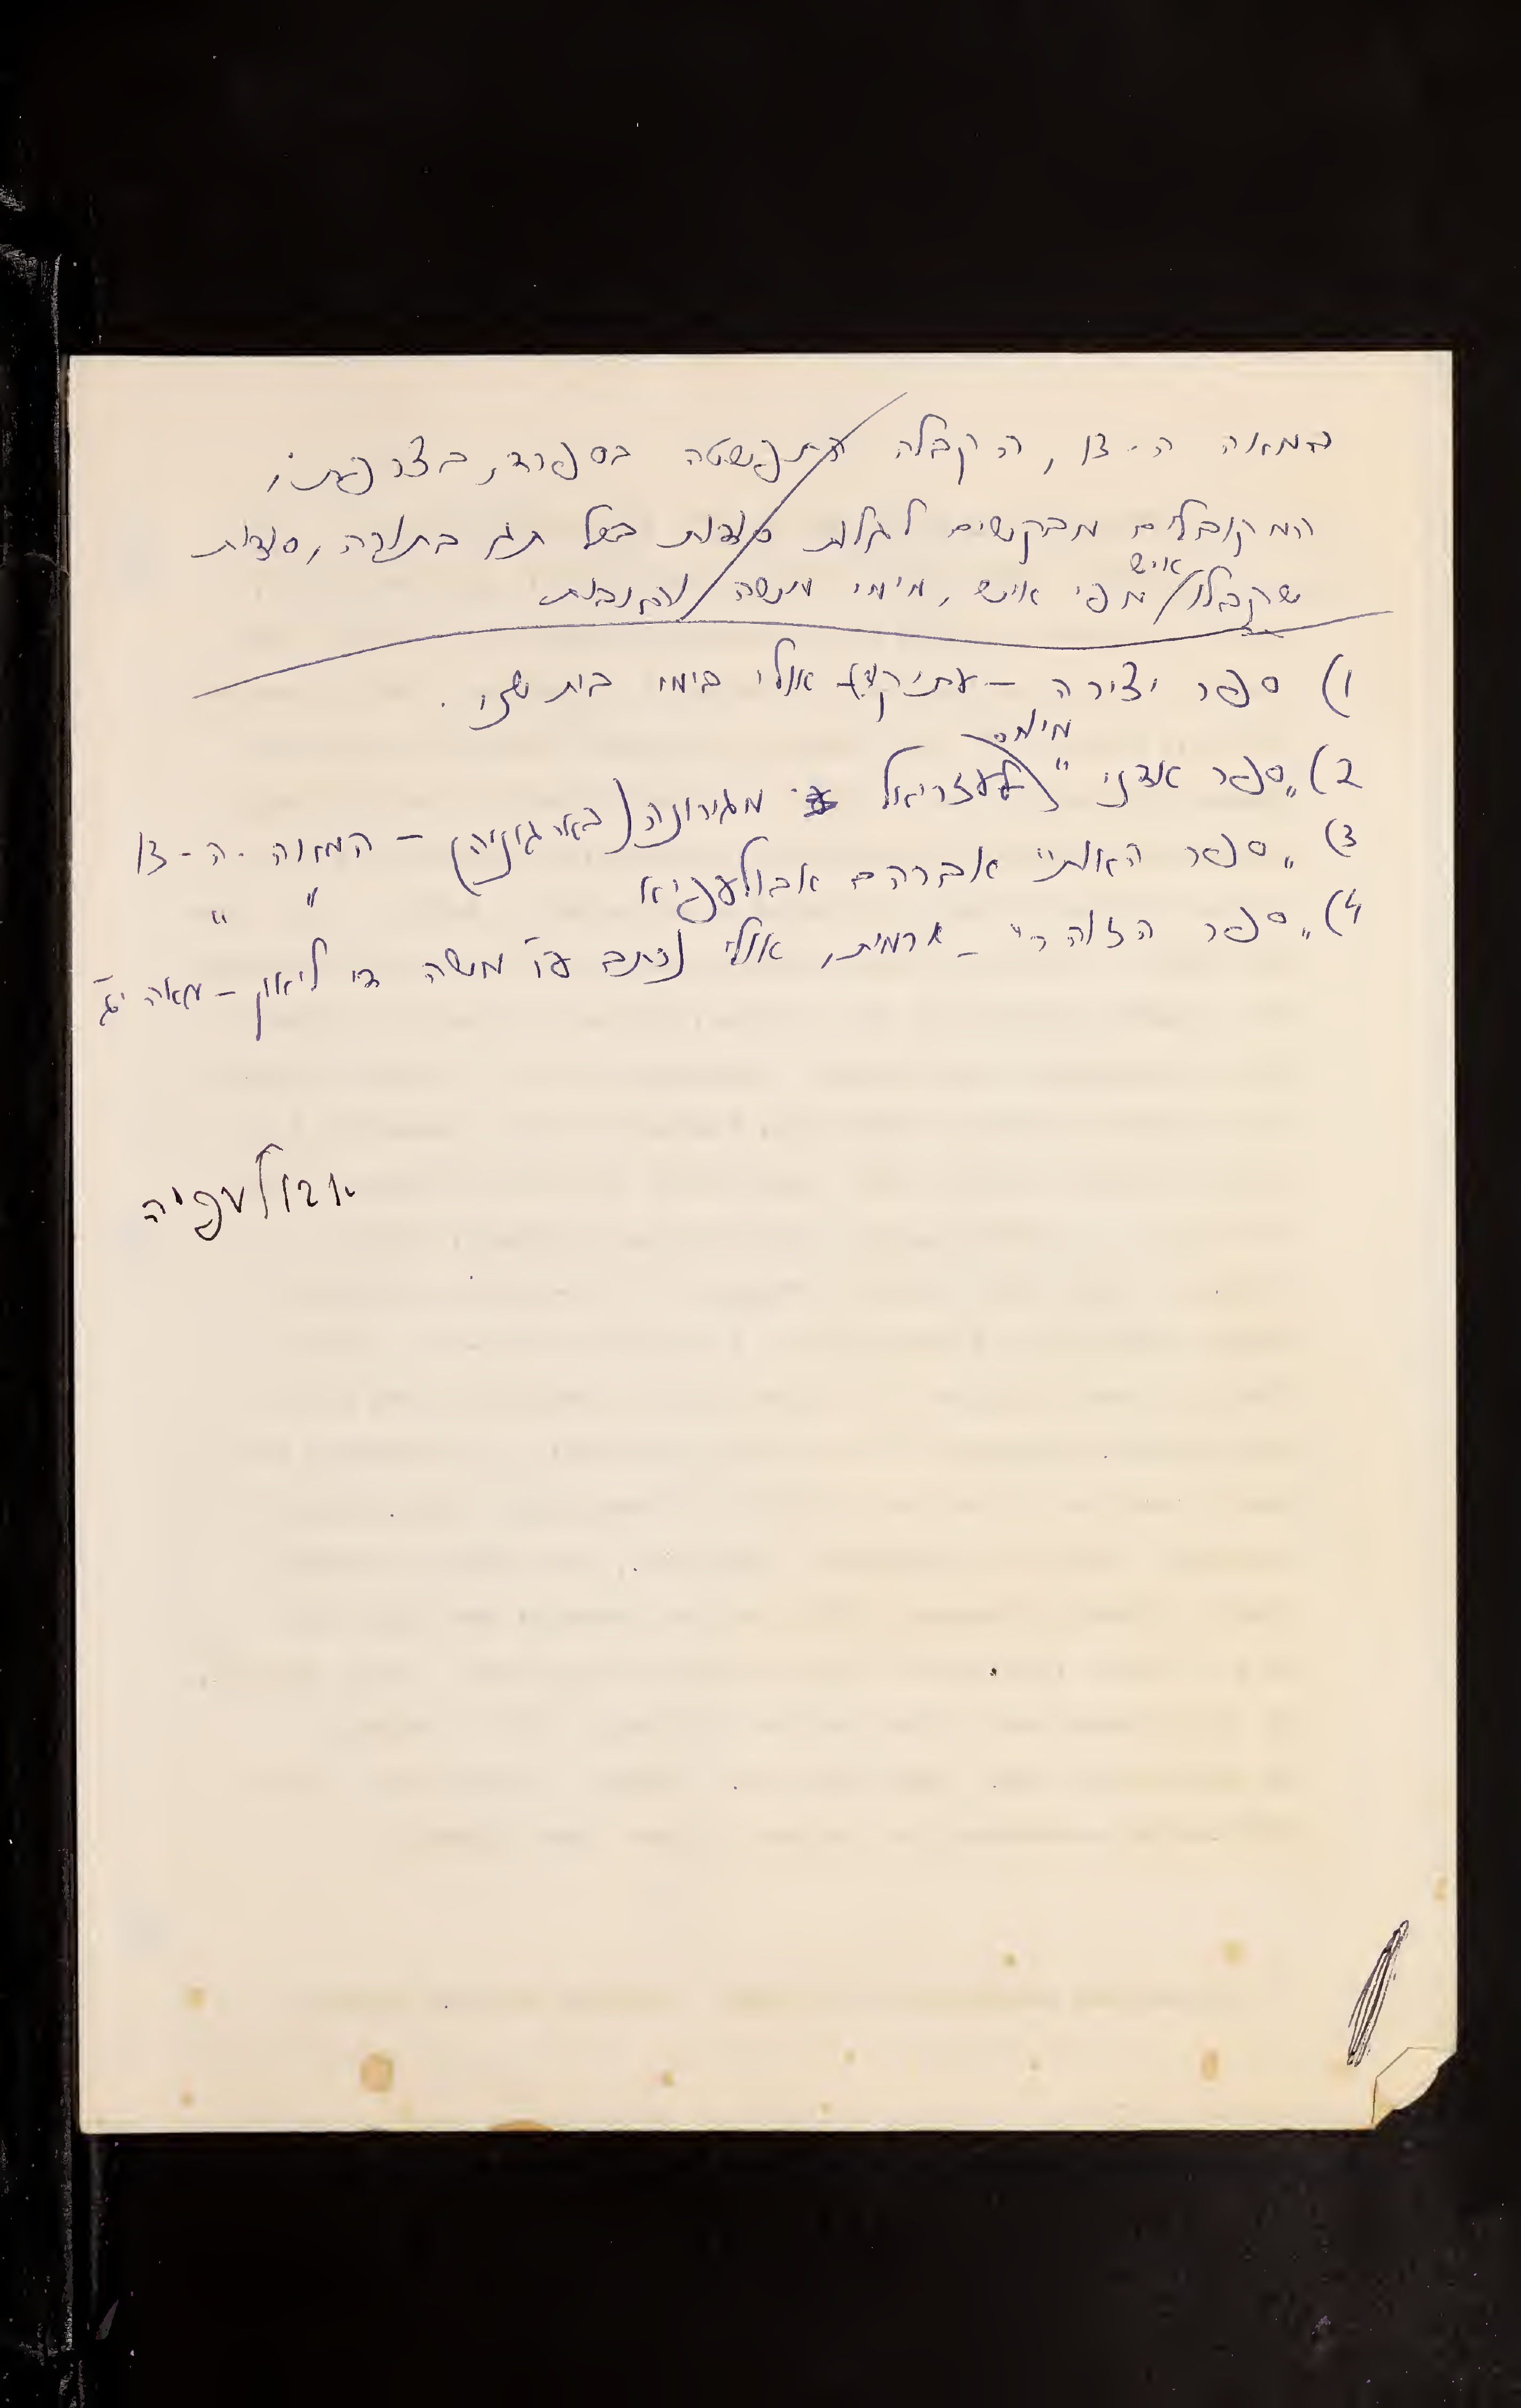 במאה ה-13, הקבלה התפשטה בספרד, בצרפת,
המקובלים מבקשים לגלות סודות בכל תג בתורה, סודות
איש
שקבלו מפי איש, מימי משה
1) ספר יצירה – עתיק אולי בימי בית שני.
2) "ספר אדני" לעזריאל מגירונה ( – המאה ה-13
3) "ספר האות" אברהם אבולעפיא " "
4) "ספר הזוהר" – ארמית, אולי נכתב ע"י משה די ליאון – מאה י"ג
אבולעפיה